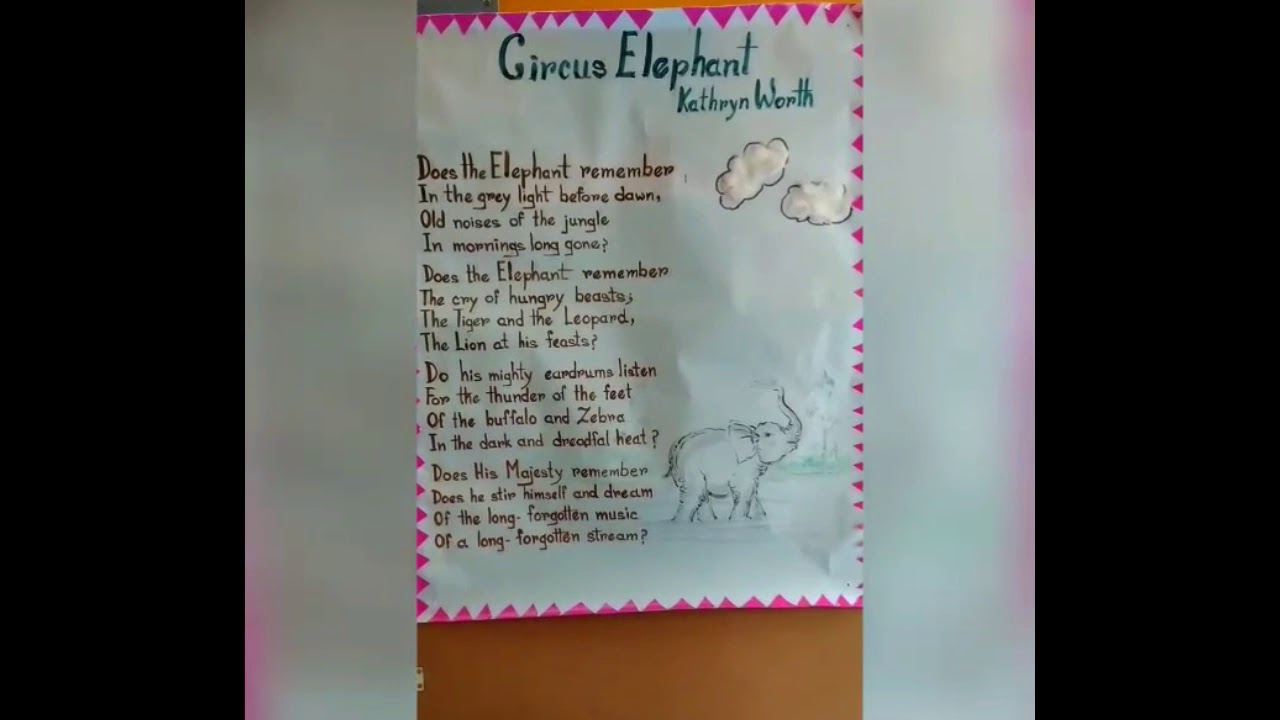 Circus Elephant
Kathryn Worth
Does the Elephant remember
In the grey light before dawn,
Old noises of the jungle
In mornings long gone?
Does the Elephant remember
The cry of hungry beasts;
The Tiger and the Leopard,
The Lion at his feasts?
Do his mighty eardrums listen
For the thunder of the feet
Of the buffalo and Zebra
In the dark and dreadful heat?
Does His Majesty remember
Does he stir himself and dream
Of the long-forgotten music
Of a long-forgotten stream?